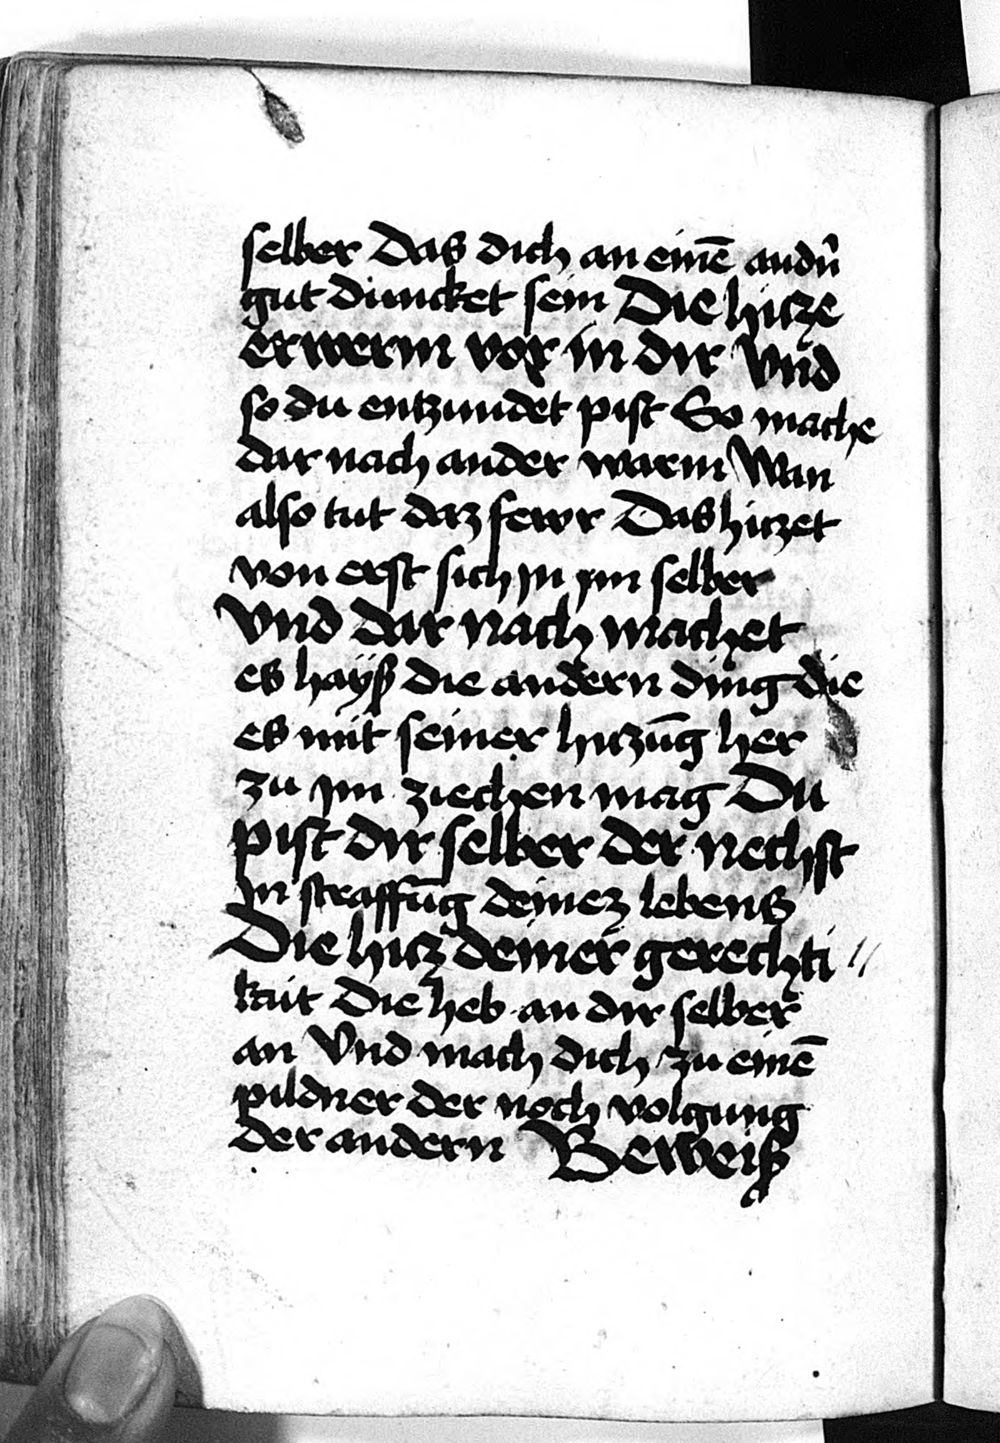 selber Das dich an einē andn̄
gut duncket sein Die hicze
erwerm vor in dir Vnd
so du entzundet pist So mache
dar nach ander warm Wan
also tut daz fewr Das hiczet
von erst sich Jn ym selber
Vnd dar nach machet
es hayß die andern ding die
es mit seiner hiczūg her
zu ym ziechen mag Du
pist dir selber der nechst
Jn straffūg deinez lebens
Die hicz deiner gerechti //
kait Die heb an dir selber
an Vnd mach dich zu einē
pildner der noch volgung
der andern Beweiß